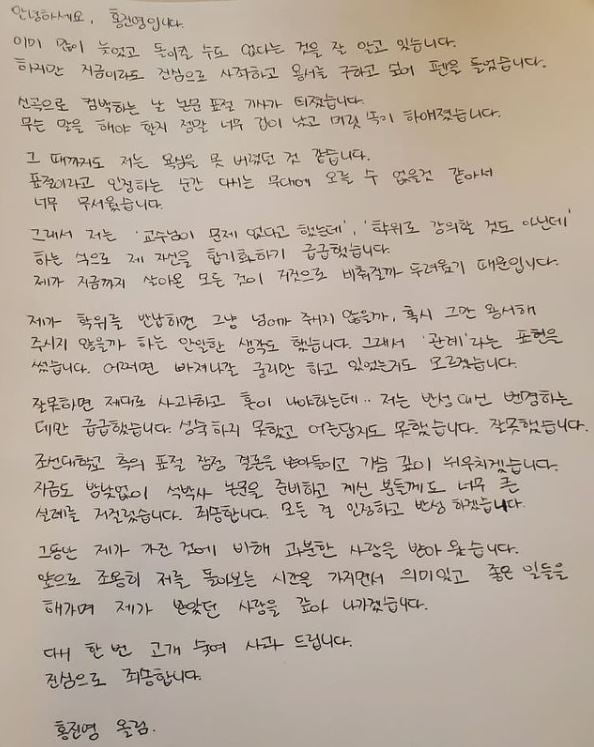 안녕하세요, 홍진영입니다.
이미 많이 늦었고 돌이킬 수도 없다는 것을 잘 알고 있습니다.
하지만 지금이라도 진심으로 사죄하고 용서를 구하고 싶어 펜을 들었습니다.
신곡으로 컴백하는 날 논문 표절 기사가 터졌습니다.
무슨 말을 해야 할지 정말 너무 겁이 났고 머릿 속이 하얘졌습니다.
그 때까지도 저는 욕심을 못 버렸던 것 같습니다.
표절이라고 인정하는 순간 다시는 무대에 오를 수 없을것 같아서
너무 무서웠습니다.
그래서 저는 '교수님이 문제 없다고 했는데', '학위로 강의할 것도 아닌데'
하는 식으로 제 자신을 합리화하기 급급했습니다.
제가 지금까지 살아온 모든 것이 거짓으로 비춰질까 두려웠기 때문입니다.
제가 학위를 반납하면 그냥 넘어가 주시지 않을까, 혹시 그만 용서해
주시지 않을까 하는 안일한 생각도 했습니다. 그래서 '관례'라는 표현을
썼습니다. 어쩌면 빠져나갈 궁리만 하고 있었는지도 모르겠습니다.
잘못하면 제대로 사과하고 혼이 나야하는데.. 저는 반성 대신 변명하는
데만 급급했습니다. 성숙하지 못했고 어른답지도 못했습니다. 잘못했습니다.
조선대학교 측의 표절 잠정 결론을 받아들이고 가슴 깊이 뉘우치겠습니다.
지금도 밤낮없이 석박사 논문을 준비하고 계신 분들께도 너무 큰
실례를 저질렀습니다. 죄송합니다. 모든 걸 인정하고 반성 하겠습니다.
그동안 제가 가진 것에 비해 과분한 사랑을 받아 왔습니다.
앞으로 조용히 저를 돌아보는 시간을 가지면서 의미있고 좋은 일들을
해가며 제가 받았던 사랑을 갚아 나가겠습니다.
다시 한 번 고개 숙여 사과 드립니다.
진심으로 죄송합니다.
홍진영 올림.